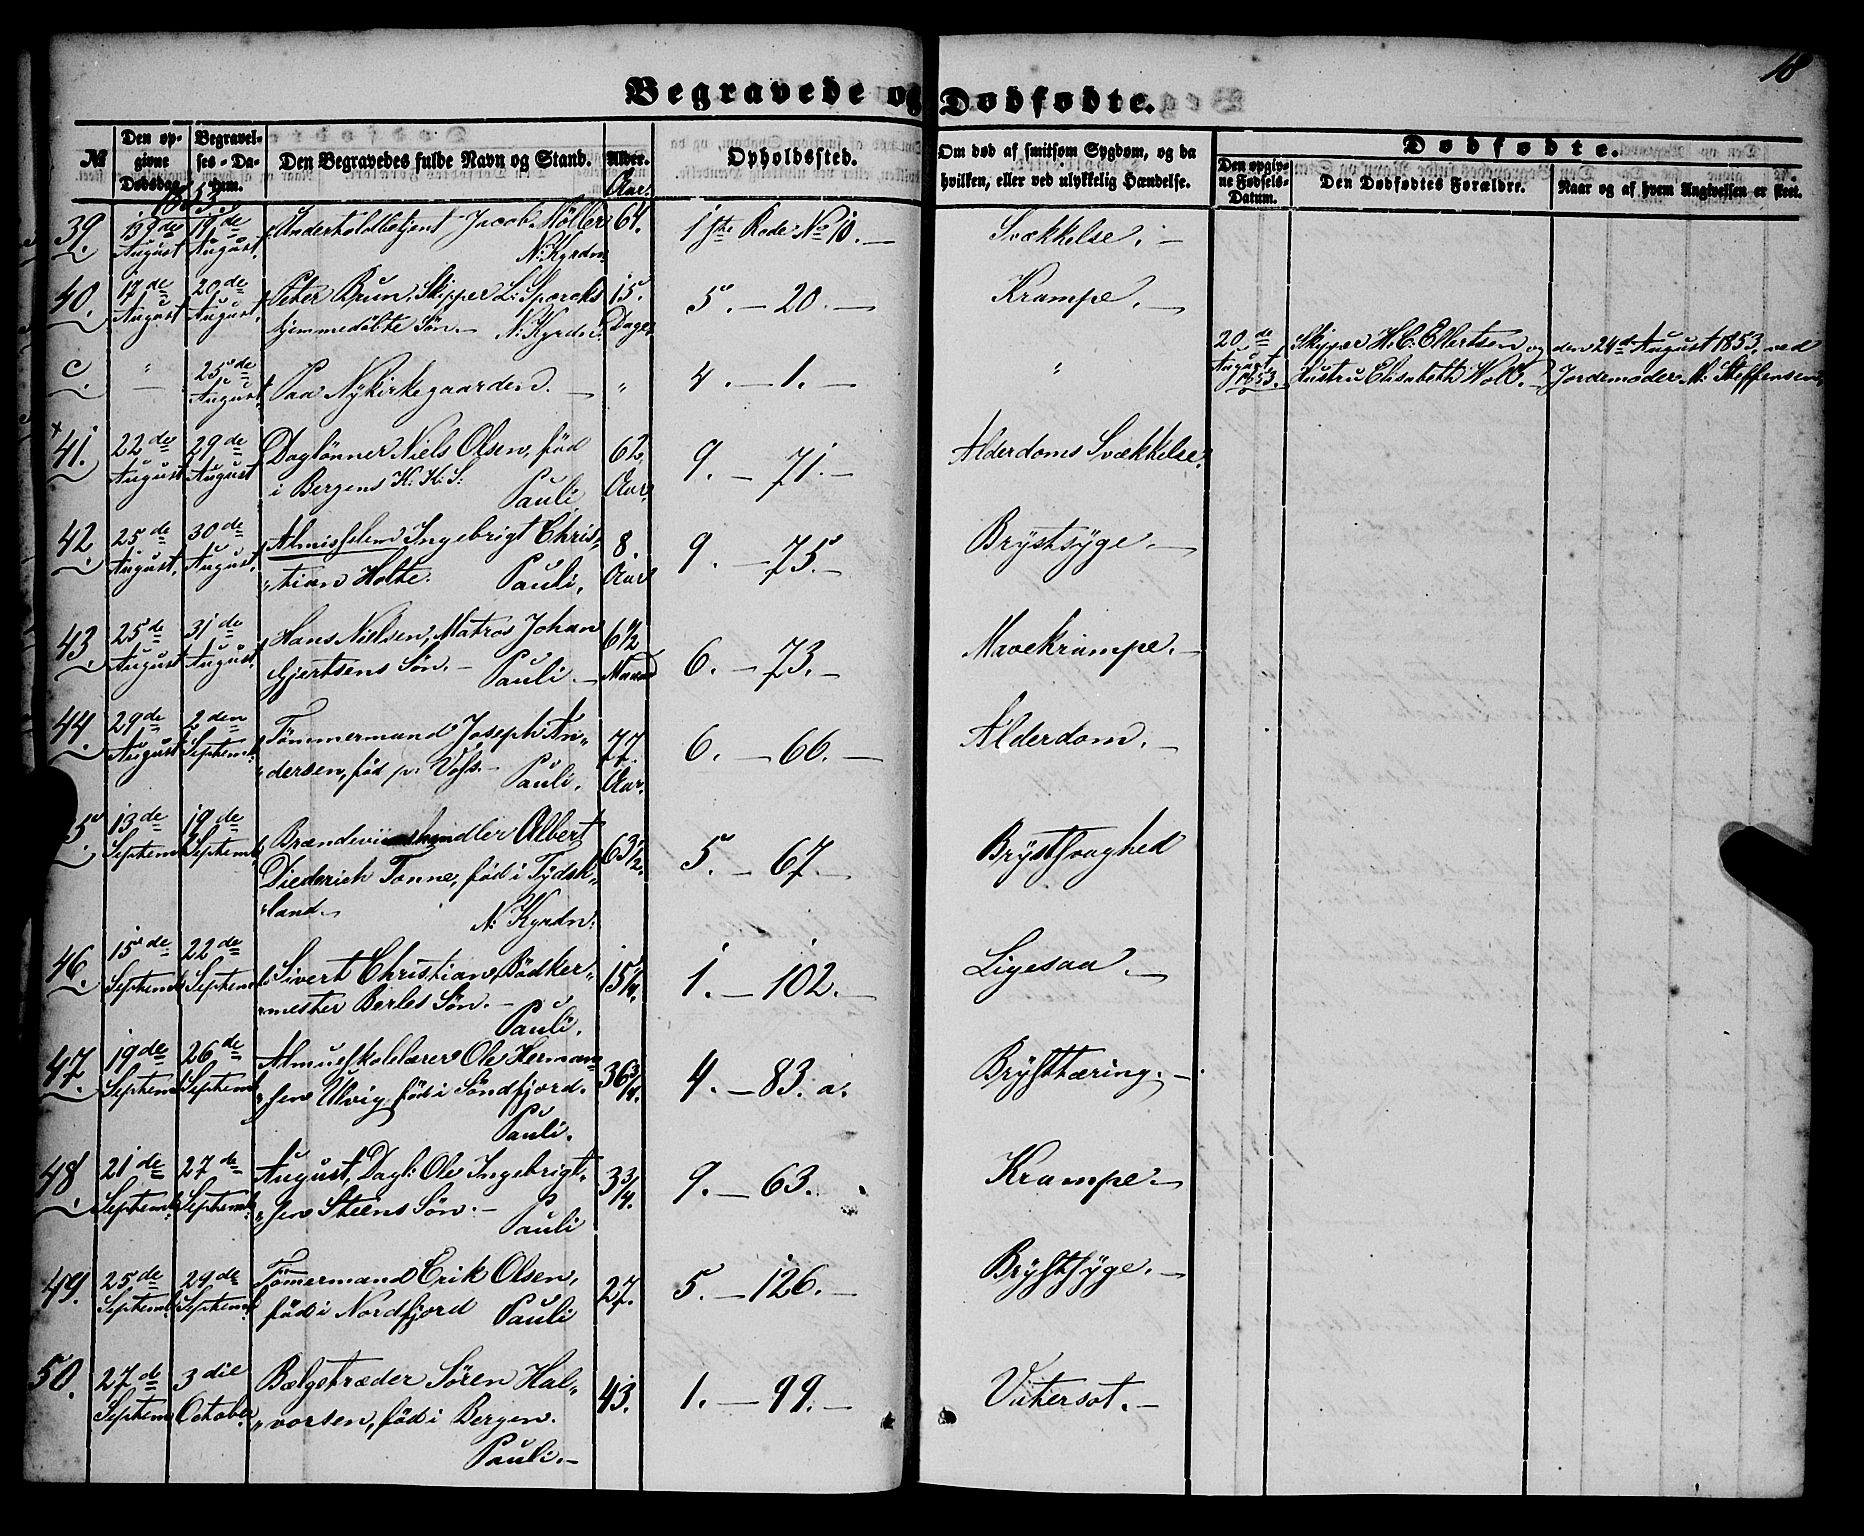 18
Begravede og Dødfødte.
№ Den opgivne Dødsdag. Begravelses-Datum. Den Begravedes fulde Navn og Stand. Alder. Opholdssted. Om død af smitsom Sygdom, og da hvilken, eller ved ulykkelig Hændelse. Dødfødte.
Den opgivne Fødsels-Datum. Den Dødfødtes Forældre. Naar og af hvem Angivelsen er skeet.
1853. Aar.
39. 13de August 19de August Underholdbetjent Jacob Møller 64. 1ste Rode No 10. — Svækkelse. —
N: Kyrdn.
40. 17de August 20de August. Peter Brun, Skipper L: Sparoks 15. 5. — 20. — Krampe. —
hjemmedøbte Søn. — N: Kyrdn. Dage.
c. " 25de August Paa Nykirkegaarden. — " 4. — 1. — " 20de August 1853. Skipper H. C. Ellertsen og den 24de August 1853, ved
Hustru Elisabeth Holt. Jordemoder M. Steffensen.
+
41. 22de August 29de August Daglønner Niels Olsen, fød 62. 9. — 71. — Alderdoms Svækkelse.
i Bergens K. K. S: Pauli. Aar.
42. 25de August. 30de August. Almisselem Ingebrigt Chris„ 8. 9. — 75. — Brystsyge. —
„tian Holte. Pauli. Aar
43. 25de August 31de August. Hans Nielsen, Matros Johan 6½ 6. — 73. — Mavekrampe. —
Gjertsens Søn. — Pauli. — Maaned
44. 29de August 2den Septemb. Tømmermand Joseph An„ 77. 6. — 66. — Alderdom. —
„dersen, fød p. Voss. — Pauli. Aar.
45. 13de Septemb. 19de Septemb. Brændeviinshandler Albert 63½. 5. — 67. — Brystsvaghed
Diederich Tonne, fød i Tydsk„
„land. — N: Kyrdn:
46. 15de Septemb 22de Septemb Sivert Christian, Bødker„ 15¼. 1. — 102. — Ligesaa. —
„mester Berles Søn. —
Pauli.
47. 19de Septemb 26de Septemb. Almueskolelærer Ole Herman„ 36¾. 4. — 83. a. Brysttæring. —
„sen Ulvig, fød i Søndfjord.
Pauli.
48. 21de Septemb. 27de Septemb. August, Dagl: Ole Ingebrigt„ 3¾ 9. — 63. Krampe. —
„sen Steens Søn. — Pauli
49. 25de Septemb. 29de Septemb Tømermand Erik Olsen, 27. 5. — 126. — Brystsyge. —
fød i Nordfjord Pauli
50. 27de Septemb 3die October Bælgetræder Søren Hal„ 43. 1. — 99. — Vatersot. —
„vorsen, fød i Bergen.
Pauli. —